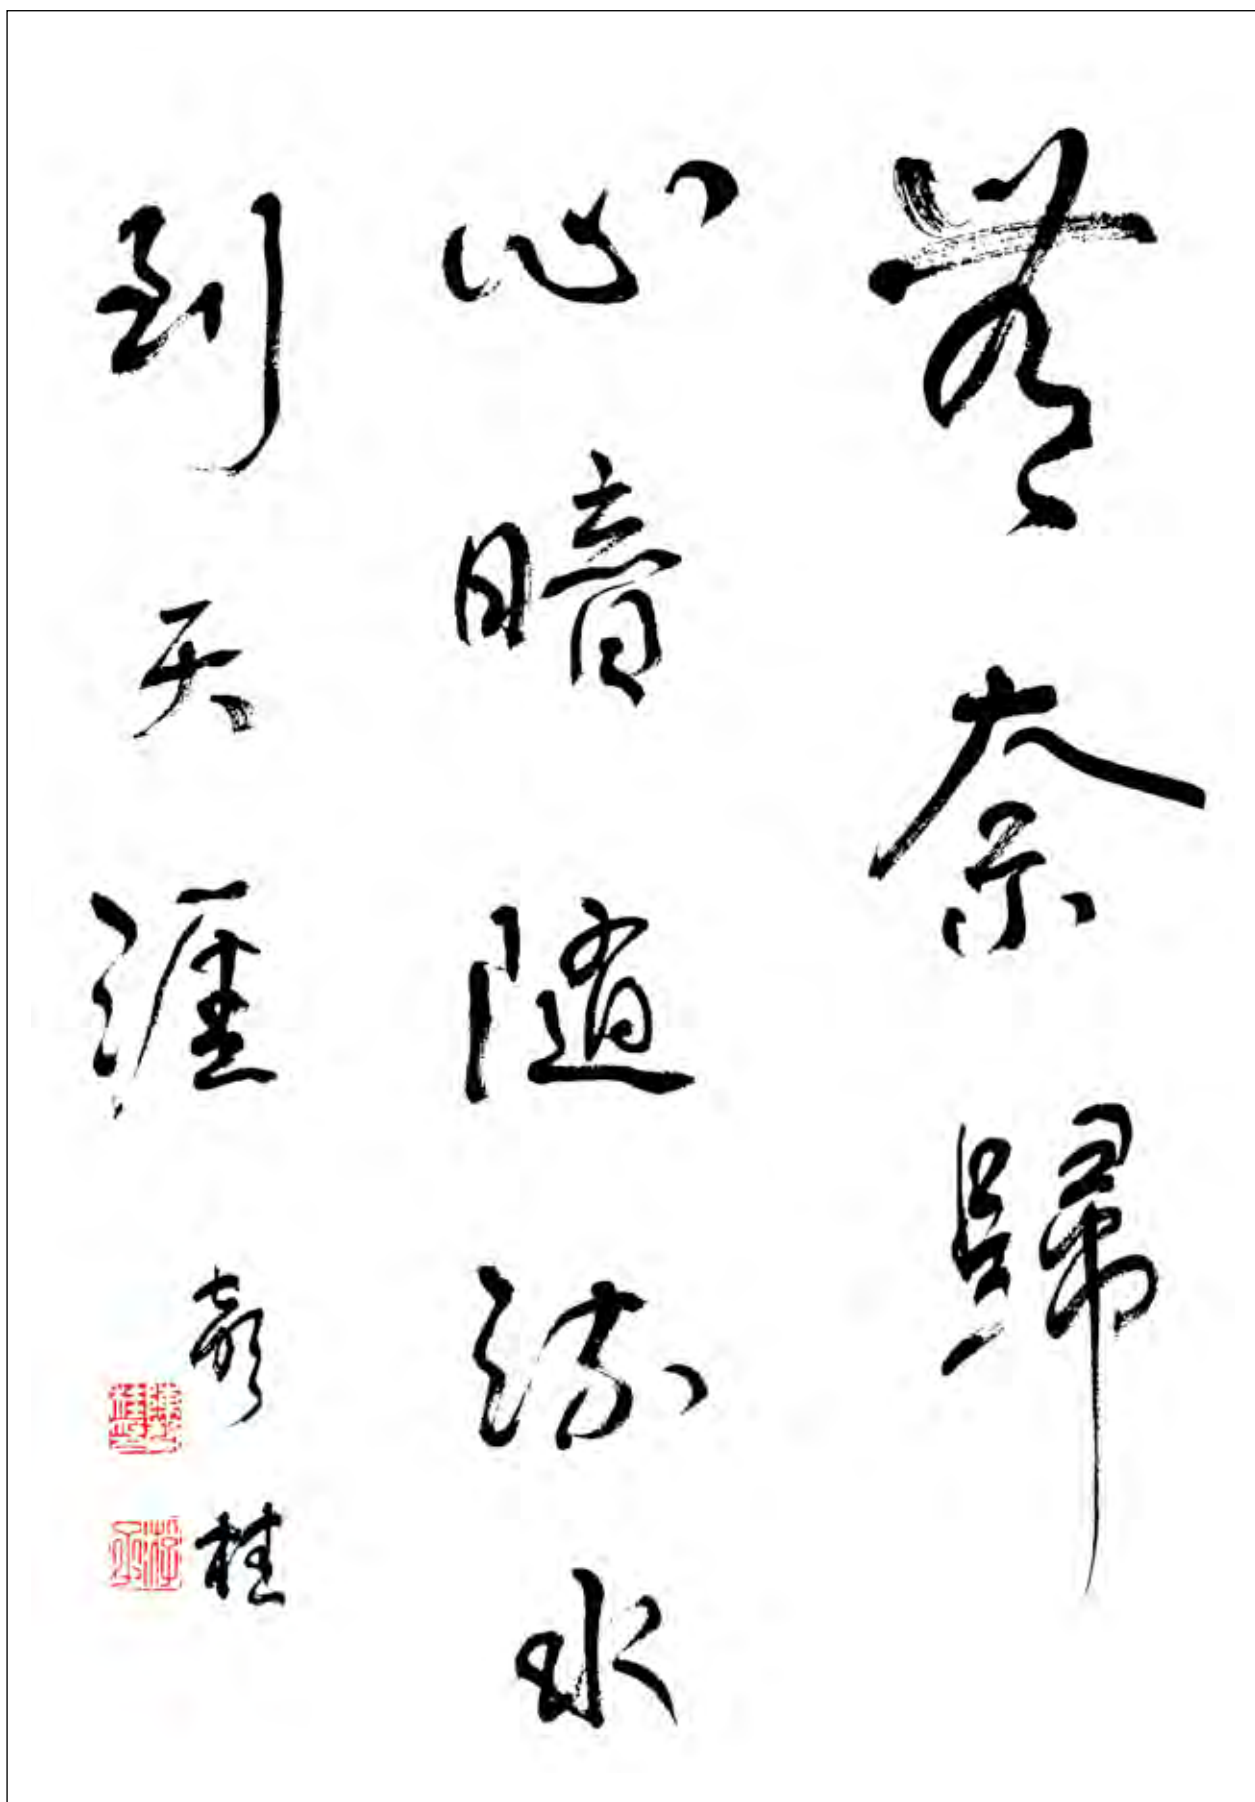 無奈歸
心暗隨流水
到天涯
桂